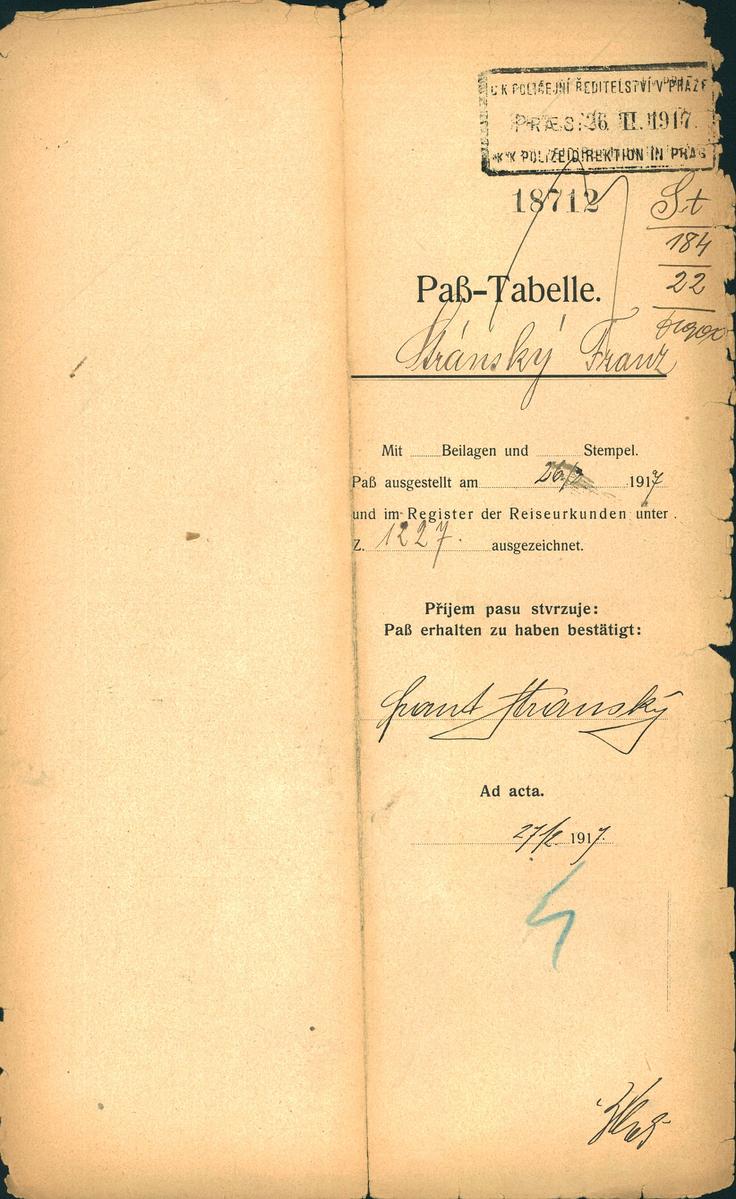 C.K POLICEJNÍ ŘEDITELSTVÍ V PRAZE
PRÆS: 26. II. 1917
K.K POLIZEIDIREKTION IN PRAG
18712
St
184
22
Paß-Tabelle.
Stránský Franz
Mit Beilagen und Stempel.
Paß ausgestellt am 26/2 1917
und im Register der Reiseurkunden unter
Z. 1227. ausgezeichnet.
Příjem pasu stvrzuje:
Paß erhalten zu haben bestätigt:
Stránský
Ad acta.
27/2 1917.